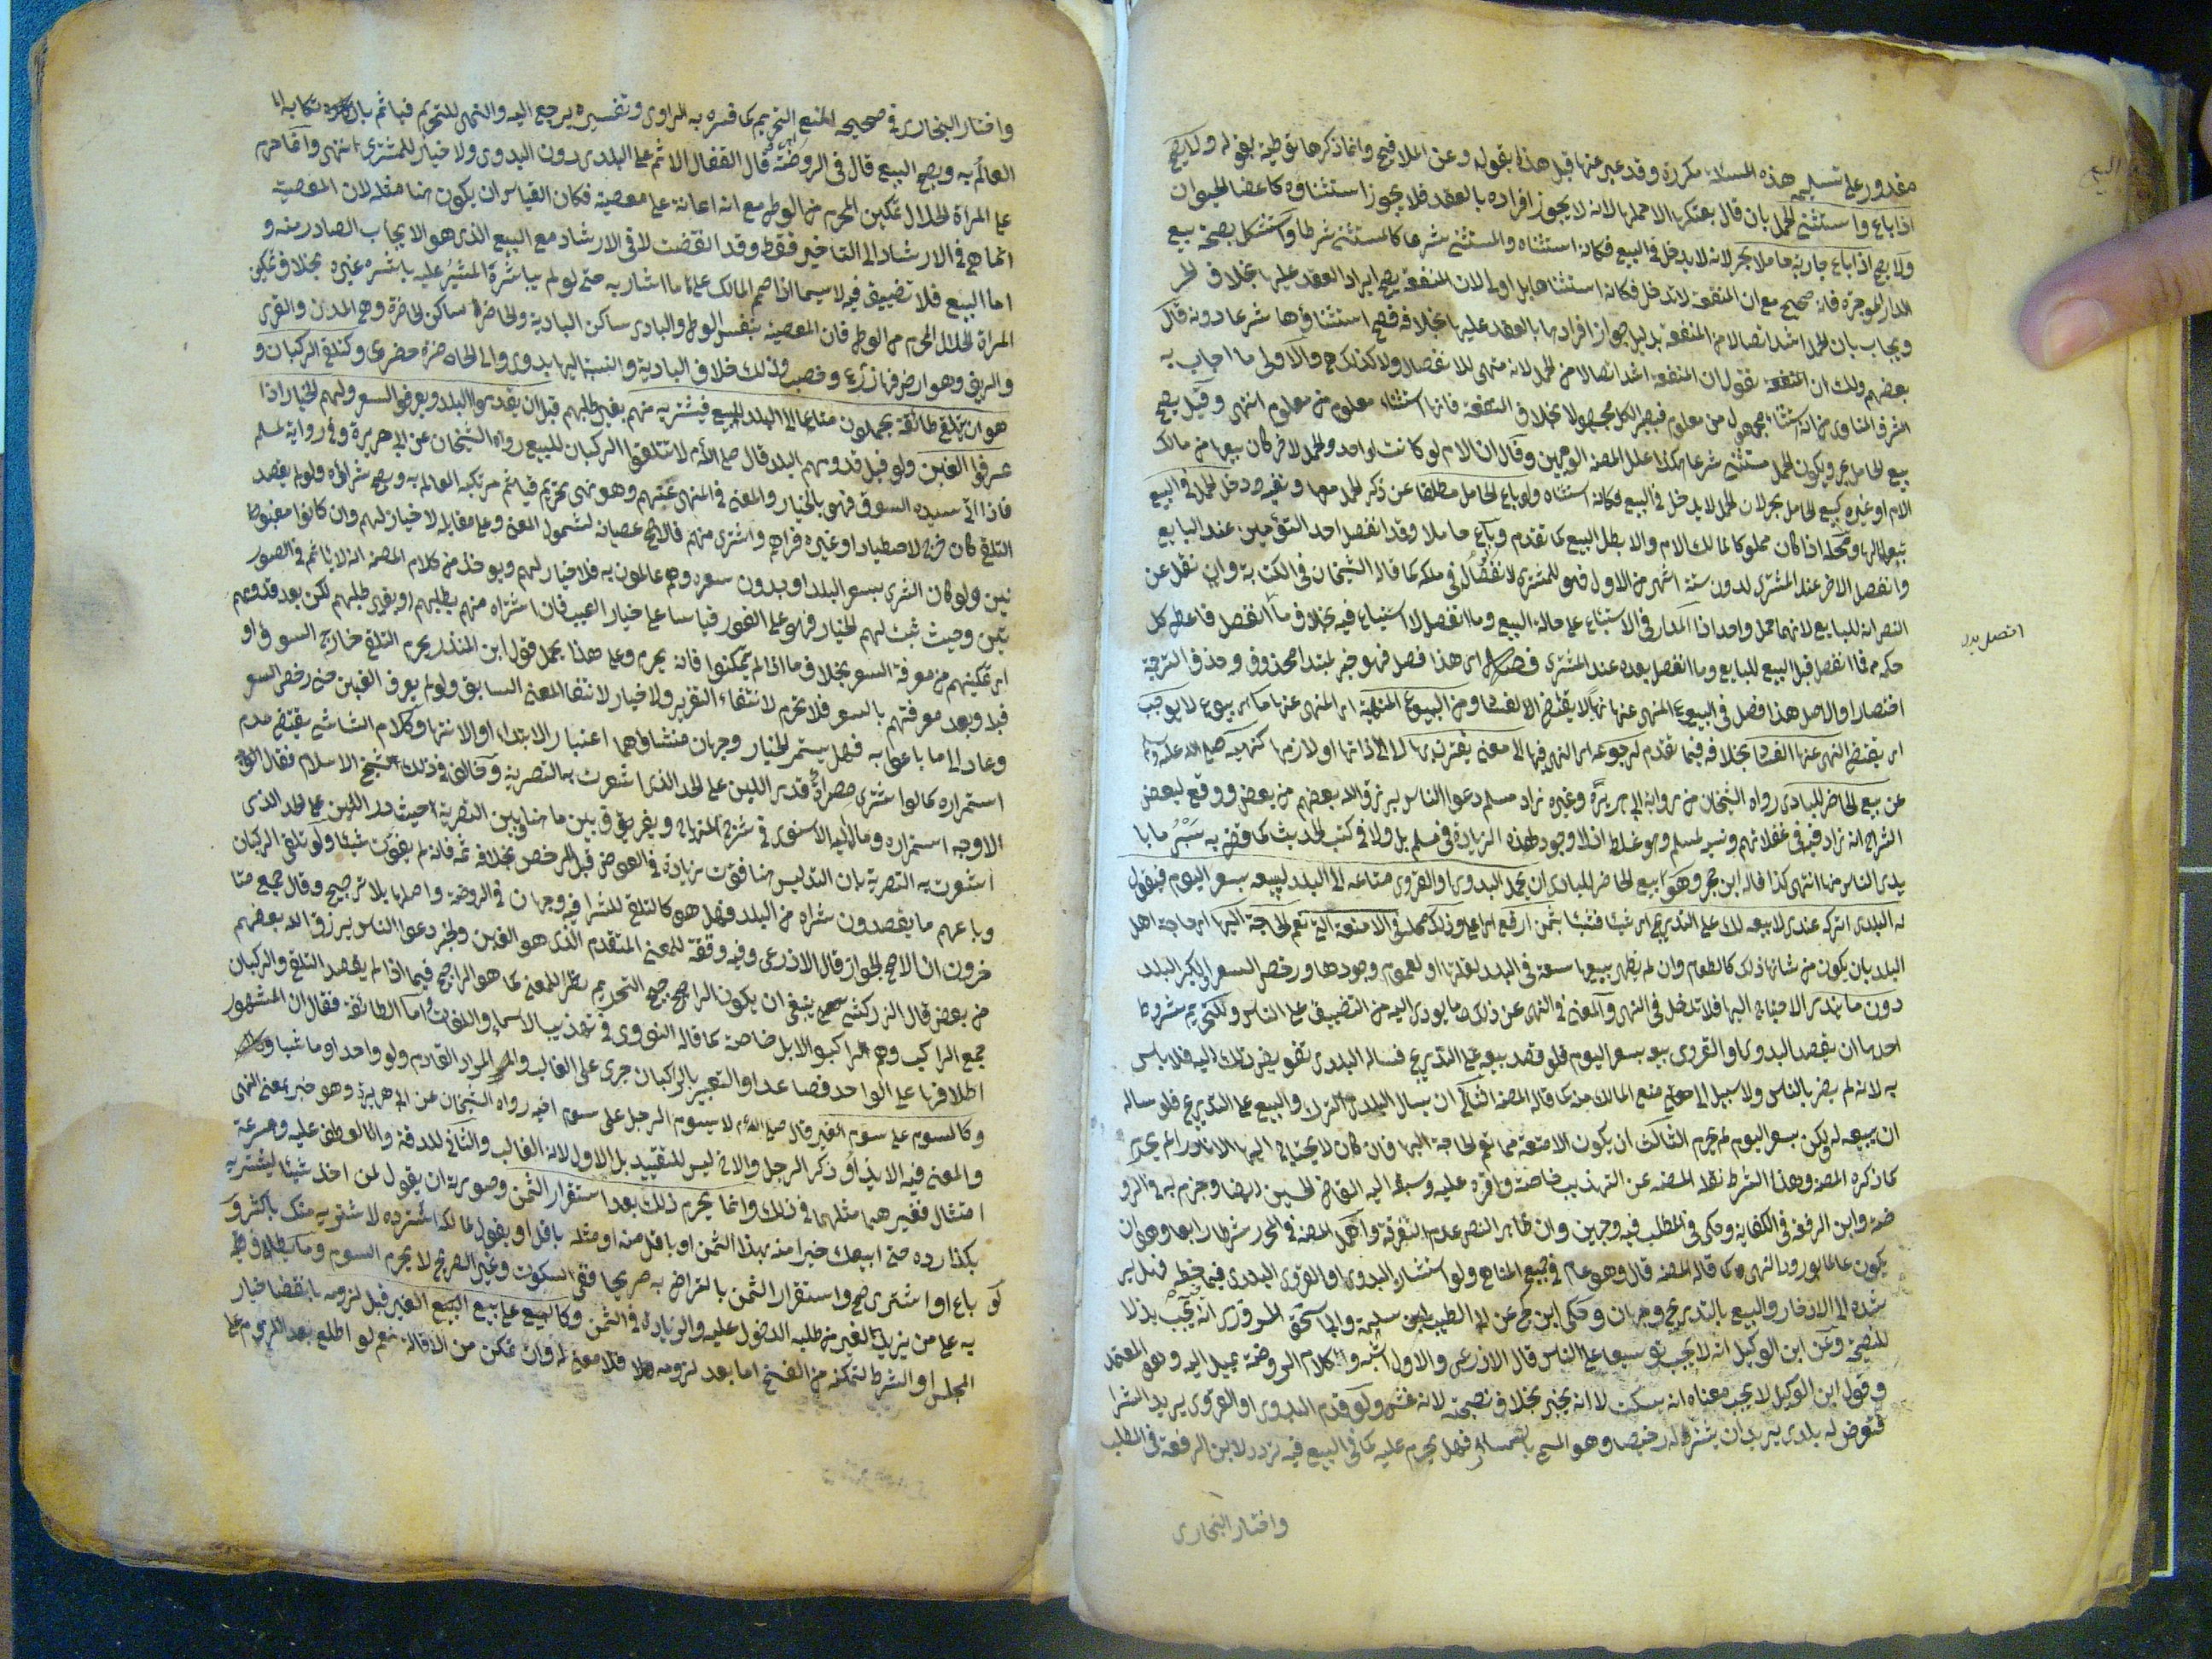 البيع
مقدور على تسليمه هذه المسئلة مكررة وقد عبر عنها قبل هذا بقوله وعن الملاقيح وانما ذكرها توطية بقوله ولا يصح
اذا باع واستثنى الحمل بان قال بعتكها الا حملها لانه لا يجوز افراده بالعقد فلا يجوز استثناؤه كاعضا الحيوان
ولا يصح اذا باع جارية حاملا بحر لانه لا يدخل في البيع فكانه استثناه والمستثنى شرعا كالمستثنى شرطا واستشكل بصحة بيع
الدار الموجرة فانه صحيح مع ان المنفعة لا تدخل فكانه استثناها بل اولى لان المنفعة يصح ايراد العقد عليها بخلاف الحمل
ويجاب بان الحمل اشد اتصالا من المنفعة بدليل جواز افرادها بالعقد عليها بخلافه فصح استثناؤها شرعا دونه قال
بعضهم ولك ان تقول ان المنفعة اشد اتصالا من الحمل لانه متهى للانفصال ولا كذلك هي والاولى ما اجاب به
الشرف المناوي من انه استثناء مجهول من معلوم فيصير الكل مجهولا بخلاف المنفعة فانها استثناء معلوم من معلوم انتهى وقيل يصح
بيع الحامل بحر ويكون الحمل مستثنى شرعا هكذا علل المصنف الوجهين وقال ان الام لو كانت لواحد والحمل لاخر كان بيعها من مالك
الام او غيره كبيع الحامل بحر لان الحمل لا يدخل في البيع فكانه استثناه ولو باع الحامل مطلقا عن ذكر الحمل معها ونفيه دخل الحمل في البيع
تبعا لها ومحله اذا كان مملوكا لمالك الام والا بطل البيع كما تقدم ولو باع حاملا وقد انفصل احد التؤمين عند البايع
وانفصل الاخر عند المشتري لدون ستة اشهر من الاول فهو للمشتري لانفصاله في ملكه كما قاله الشيخان في الكتابة وان نقل عن
النص انه للبايع لانهما حمل واحد اذ المدار في الاستتباع على حالة البيع وما انفصل لا استتباع فيه بخلاف ما لم ينفصل فاعطي كل
حكمه فما انفصل قبل البيع للبايع وما انفصل بعده عند المشتري فصل اي هذا فصل فهو خبر لمبتدا محذوف وحذف الترجمة
اختصارا والاصل هذا فصل في البيوع المنهي عنها نهيا لا يقتضي الفساد ومن البيوع المنهي عنها ما اي بيوع لا يوجب
اي يقتضي النهي عنها الفساد بخلافه فيما تقدم لرجوعه اي النهي فيها الى معنى يقترن بها لا الى ذاتها او لازمها كنهيه صلى الله عليه وسلم
عن بيع الحاضر للبادي رواه الشيخان من رواية ابي هريرة وغيره زاد مسلم دعوا الناس يرزق الله بعضهم من بعض ووقع لبعض
الشراح انه زاد فيه في غفلاتهم ونسبه لمسلم وهو غلط اذ لا وجود لهذه الزيادة في مسلم بل ولا في كتب الحديث كما قضى به سبر ما با
يدي الناس منها انتهى كذا قاله ابن حجر وهو اي بيع الحاضر للبادي ان يحمل البدوي او القروي متاعه الى البلد ليبيعه بسعر اليوم فيقول
له البلدي اتركه عندي لابيعه لك على التدريج اي شيئا فشيئا بثمن ارفع اي اعلى وذلك كما في الامتعة التي تعم الحاجة اليها اي حاجة اهل
البلد بان يكون من شانها ذلك كالطعام وان لم يظهر ببيعها سعة في البلد لقلتها او لعموم وجودها ورخص السعر او لكبر البلد
دون ما يندر الاحتياج اليها فلا تدخل في النهي والمعنى في النهي عن ذلك ما يودي اليه من التضييق على الناس ولتحريم شروط
احدها ان يقصد البدوي او القروي بيعه بسعر اليوم فلو قصد بيعه على التدريج فساله البلدي تفويض ذلك اليه فلا باس
به لانه لم يضر بالناس ولا سبيل الى منع المالك منه كما قاله المصنف الثاني ان يسال البلدي الترك والبيع على التدريج فلو ساله
ان يبيعه له ولكن بسعر اليوم لم يحرم الثالث ان يكون الامتعة مما تعم الحاجة اليها فان كان لا يحتاج اليها الا نادرا لم يحرم
كما ذكره المصنف وهذا الشرط نقله المصنف عن التهذيب خاصة واقره عليه وسبقه اليه القاضي الحسين ايضا وجزم به في الرو
ضة وابن الرفعة في الكفاية وحكى في المطلب فيه وجهين وان ظاهر النص عدم التفرقة واهمل المصنف في المحرر شرطا رابعا وهو ان
يكون عالما بورود النهي كما قاله المصنف قال وهو عام في جميع المناهي ولو استشار البدوي او القروي البلدي فيما حظه فهل ير
شده الى الادخار والبيع بالتدريج وجهان وحكى ابن كج عن ابي الطيب بن سلمة وابي اسحق المروزي انه يجب بذلا
للنصيحة وعن ابن الوكيل انه لا يجب توسيعا على الناس قال الاذرعي والاول اشبه وكلام الروضة يميل اليه وهو المعتمد
وقول ابن الوكيل لا يجب معناه انه يسكت لا انه يخبر بخلاف نصيحته لانه غش ولو قدم البدوي او القروي يريد الشرا
فتعرض له بلدي يريد ان يشتري له رخيصا وهو المسمى بالسمسار فهل يحرم عليه كما في البيع فيه تردد لابن الرفعة في المطلب
واختار البخاري
وافتار البخاري في صحيحه المنع التحريم كما فسره به الراوي وتفسيره يرجع اليه والنهي للتحريم فياثم بارتكابه
العالم به ويصح البيع قال في الروضة قال القفال الاثم على البلدي دون البدوي ولا خيار للمشتري انتهى وانما حرم
على المراة الحلال تمكين المحرم من الوطي مع انه اعانة على معصية فكان القياس ان يكون هنا مثله لان المعصية
انما هي في الارشاد الى التاخير فقط وقد انقضت لا في الارشاد مع البيع الذي هو الايجاب الصادر منه و
اما البيع فلا تضييق فيه لا سيما اذا صمم المالك على ما اشار به حتى لو لم يباشره المشير عليه باشره غيره بخلاف تمكين
المراة الحلال المحرم من الوطي فان المعصية بنفس الوطي والبادي ساكن البادية والحاضر ساكن الحاضرة وهي المدن والقرى
والريف وهو ارض فيها زرع وخصب وذلك خلاف البادية والنسبة اليها بدوي والى الحاضرة حضري وكتلقي الركبان و
هو ان يتلقى طائفة يحملون متاعا الى البلد للبيع فيشتريه منهم بغير طلبهم قبل ان يقدموا البلد ويعرفوا السعر ولهم الخيار اذا
عرفوا الغبن ولو قبل قدومهم البلد قال صلى الله عليه وسلم لا تتلقوا الركبان للبيع رواه الشيخان عن ابي هريرة وفي رواية لمسلم
فاذا اتى سيده السوق فهو بالخيار والمعنى في النهي غبنهم وهو نهي تحريم فياثم مرتكبه العالم به ويصح شراؤه ولو لم يقصد
التلقي كان خرج لاصطياد او غيره فراهم واشترى منهم فالاصح عصيانه لشمول المعنى وعلى مقابله لا خيار لهم وان كانوا مغبو
نين ولو كان الشرى بسعر البلد او بدون سعره وهم عالمون به فلا خيار لهم ويوخذ من كلام المصنف انه لا ياثم في الصور
تين وحيث ثبت لهم الخيار فهو على الفور قياسا على خيار العيب فان اشتراه منهم بطلبهم او بغير طلبهم لكن بعد قدومهم
اي تمكينهم من معرفة السعر بخلاف ما اذا لم يتمكنوا فانه يحرم وعلى هذا يحمل قول ابن المنذر يحرم التلقي خارج السوق او
قبله وبعد معرفتهم بالسعر فلا تحرم لانتفاء التغرير ولا خيار لانتفا المعنى السابق ولو لم يعرف الغبن حتى رخص السعر
وعاد الى ما باعوا به فهل يستمر الخيار وجهان منشاؤهما اعتبار الابتداء او الانتها وكلام الشاشي يقتضي عدم
استمراره كما لو اشترى مصراة قدر اللبن على الحد الذي اشعرت به التصرية وخالف في ذلك شيخ الاسلام فقال
الاوجه استمراره ومال اليه الاسنوي في شرح المنهاج ويفرق بين ما هنا وبين التصرية حيث در اللبن على الحد الذي
اشعرت به التصرية بان التدليس هنا فوت زيادة في العوض قبل الرخص بخلافه ثم فانه لم يفوت شيئا ولو تلقى الركبان
وباعهم ما يقصدون شراه من البلد فهل هو كالتلقي للشرا فيه وجهان في الروضة واصلها بلا ترجيح وقال جمع متا
خرون ان الاصح الجواز قال الاذرعي وفيه وقفة للمعنى المتقدم الذي هو الغبن ولخبر دعوا الناس يرزق الله بعضهم
من بعض قال الزركشي ينبغي ان يكون الراجح التحريم نظرا للمعنى كما هو الراجح فيما اذا لم يقصد التلقي والركبان
جمع الراكب وهم راكبوا الابل خاصة كما قاله النووي في تهذيب الاسماء واللغات واما الطائفة فقال ان المشهور
اطلاقها على الواحد فصاعدا والتعبير بالركبان جرى على الغالب والمراد القادم ولو واحدا وماشيا
وكالسوم على سوم الغير قال صلى الله عليه وسلم لا يسوم الرجل على سوم اخيه رواه الشيخان عن ابي هريرة وهو خبر بمعنى النهي
والمعنى فيه الايذاء وذكر الرجل والاخ ليس للتقييد بل الاول لانه الغالب والثاني للرقة والعطف عليه وسرعة
امتثال فغيرهما مثلهما في ذلك وانما يحرم ذلك بعد استقرار الثمن وصورته ان يقول لمن اخذ شيئا ليشتريه
بكذا رده حتى ابيعك خيرا منه بهذا الثمن او باقل منه او مثله باقل او يقول لمالكه استرده لاشتريه منك باكثر و
لو باع او اشترى صح واستقرار الثمن بالتراضي به صريحا ففي السكوت وغير الصريح لا يحرم السوم وما يطاف
به على من يزيد لغير من طلبه الدخول عليه والزيادة في الثمن وكالبيع على بيع الغير قبل لزومه بانقضا خيار
المجلس او الشرط لتمكنه من الفسخ اما بعد لزومه فلا معنى له وان تمكن من الاقالة نعم لو اطلع بعد اللزوم على